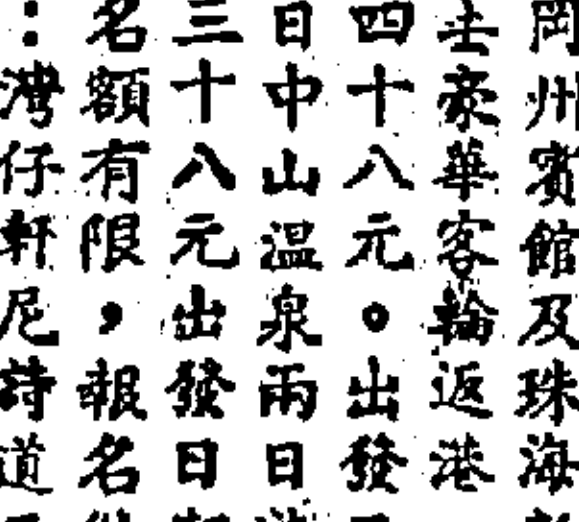 岡州賓館及珠海
豪華客輪返港
四十八元。出發
日中山温泉兩日
三十八元出發日
名額有限，報名
：灣仔軒尼詩道